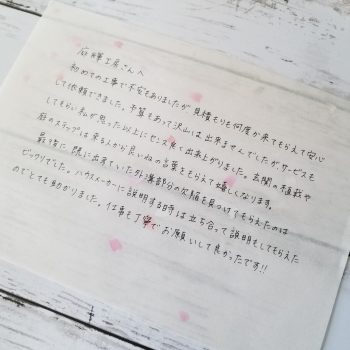 庭輝工房さんへ
初めての工事で不安もありましたが、見積もりも何度か来てもらえて安心
して依頼できました。予算もあって沢山は出来ませんでしたがサービスも
してもらい私が思った以上にセンス良く出来上がりました。玄関の植栽や
庭のステップは来る人から良いねの言葉をもらえて嬉しくなります。
最後に既に出来ていた外構部分の欠陥を見つけてもらえたのは
ビックリでした。ハウスメーカーに説明する時は立ち合って説明もしてもらえた
のでとても助かりました。仕事も丁寧でお願いして良かったです!!